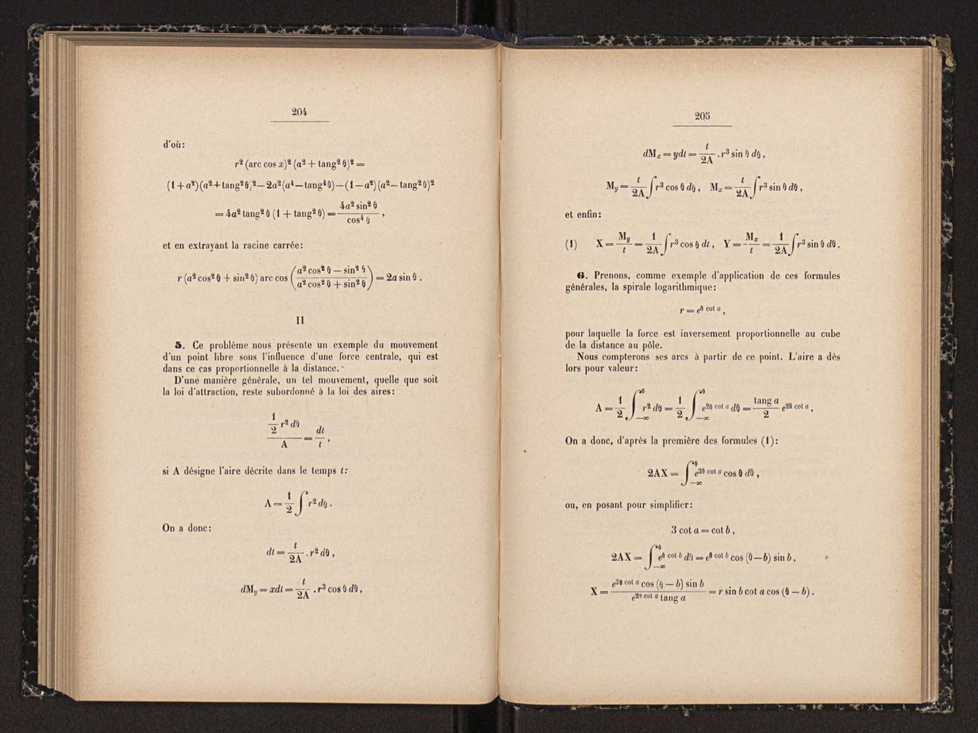 204
d'où:
r² (arc cos x)² (a² + tang² θ)² =
(1 + a²)(a² + tang² θ)² − 2a²(a⁴ − tang⁴ θ) − (1 − a²)(a² − tang² θ)²
= 4a² tang² θ (1 + tang² θ) = 4a² sin² θ / cos⁴ θ ,
et en extrayant la racine carrée:
r (a² cos² θ + sin² θ) arc cos (a² cos² θ − sin² θ / a² cos² θ + sin² θ) = 2a sin θ .
II
5. Ce problème nous présente un exemple du mouvement
d'un point libre sous l'influence d'une force centrale, qui est
dans ce cas proportionnelle à la distance.
D'une manière générale, un tel mouvement, quelle que soit
la loi d'attraction, reste subordonné à la loi des aires:
½ r² dθ / A = dt / t ,
si A désigne l'aire décrite dans le temps t:
A = ½ ∫ r² dθ .
On a donc:
dt = t / 2A . r² dθ ,
dM_y = xdt = t / 2A . r³ cos θ dθ ,
205
dM_x = ydt = t / 2A . r³ sin θ dθ ,
M_y = t / 2A ∫ r³ cos θ dθ , M_x = t / 2A ∫ r³ sin θ dθ ,
et enfin:
(1) X = M_y / t = 1 / 2A ∫ r³ cos θ dt , Y = M_x / t = 1 / 2A ∫ r³ sin θ dθ .
6. Prenons, comme exemple d'application de ces formules
générales, la spirale logarithmique:
r = e^θ cot a ,
pour laquelle la force est inversement proportionnelle au cube
de la distance au pôle.
Nous compterons ses arcs à partir de ce point. L'aire a dès
lors pour valeur:
A = ½ ∫_−∞^θ r² dθ = ½ ∫_−∞^θ e^2θ cot a dθ = tang a / 2 e^2θ cot a ,
On a donc, d'après la première des formules (1):
2AX = ∫_−∞^θ e^3θ cot a cos θ dθ ,
ou, en posant pour simplifier:
3 cot a = cot b ,
2AX = ∫_−∞^θ e^θ cot b dθ = e^θ cot b cos (θ − b) sin b ,
X = e^3θ cot a cos (θ − b) sin b / e^2θ cot a tang a = r sin b cot a cos (θ − b) .